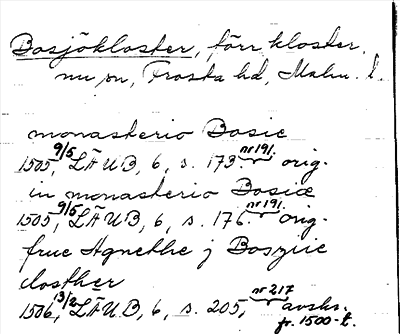 Bosjökloster, förr kloster,
nu sn, Frosta hd, Malm. l.
monasterio Bosie
1505 9/5, LÄUB, 6, s. 173. nr 191. orig.
in monasterio Bosiæ
1505, 9/5 LÄUB, 6, s. 176. nr 191. orig.
frue Agnethe j Bosziie
closther
1506, 13/2 LÄUB, 6, s. 205, nr 217 avskr.
fr. 1500-t.